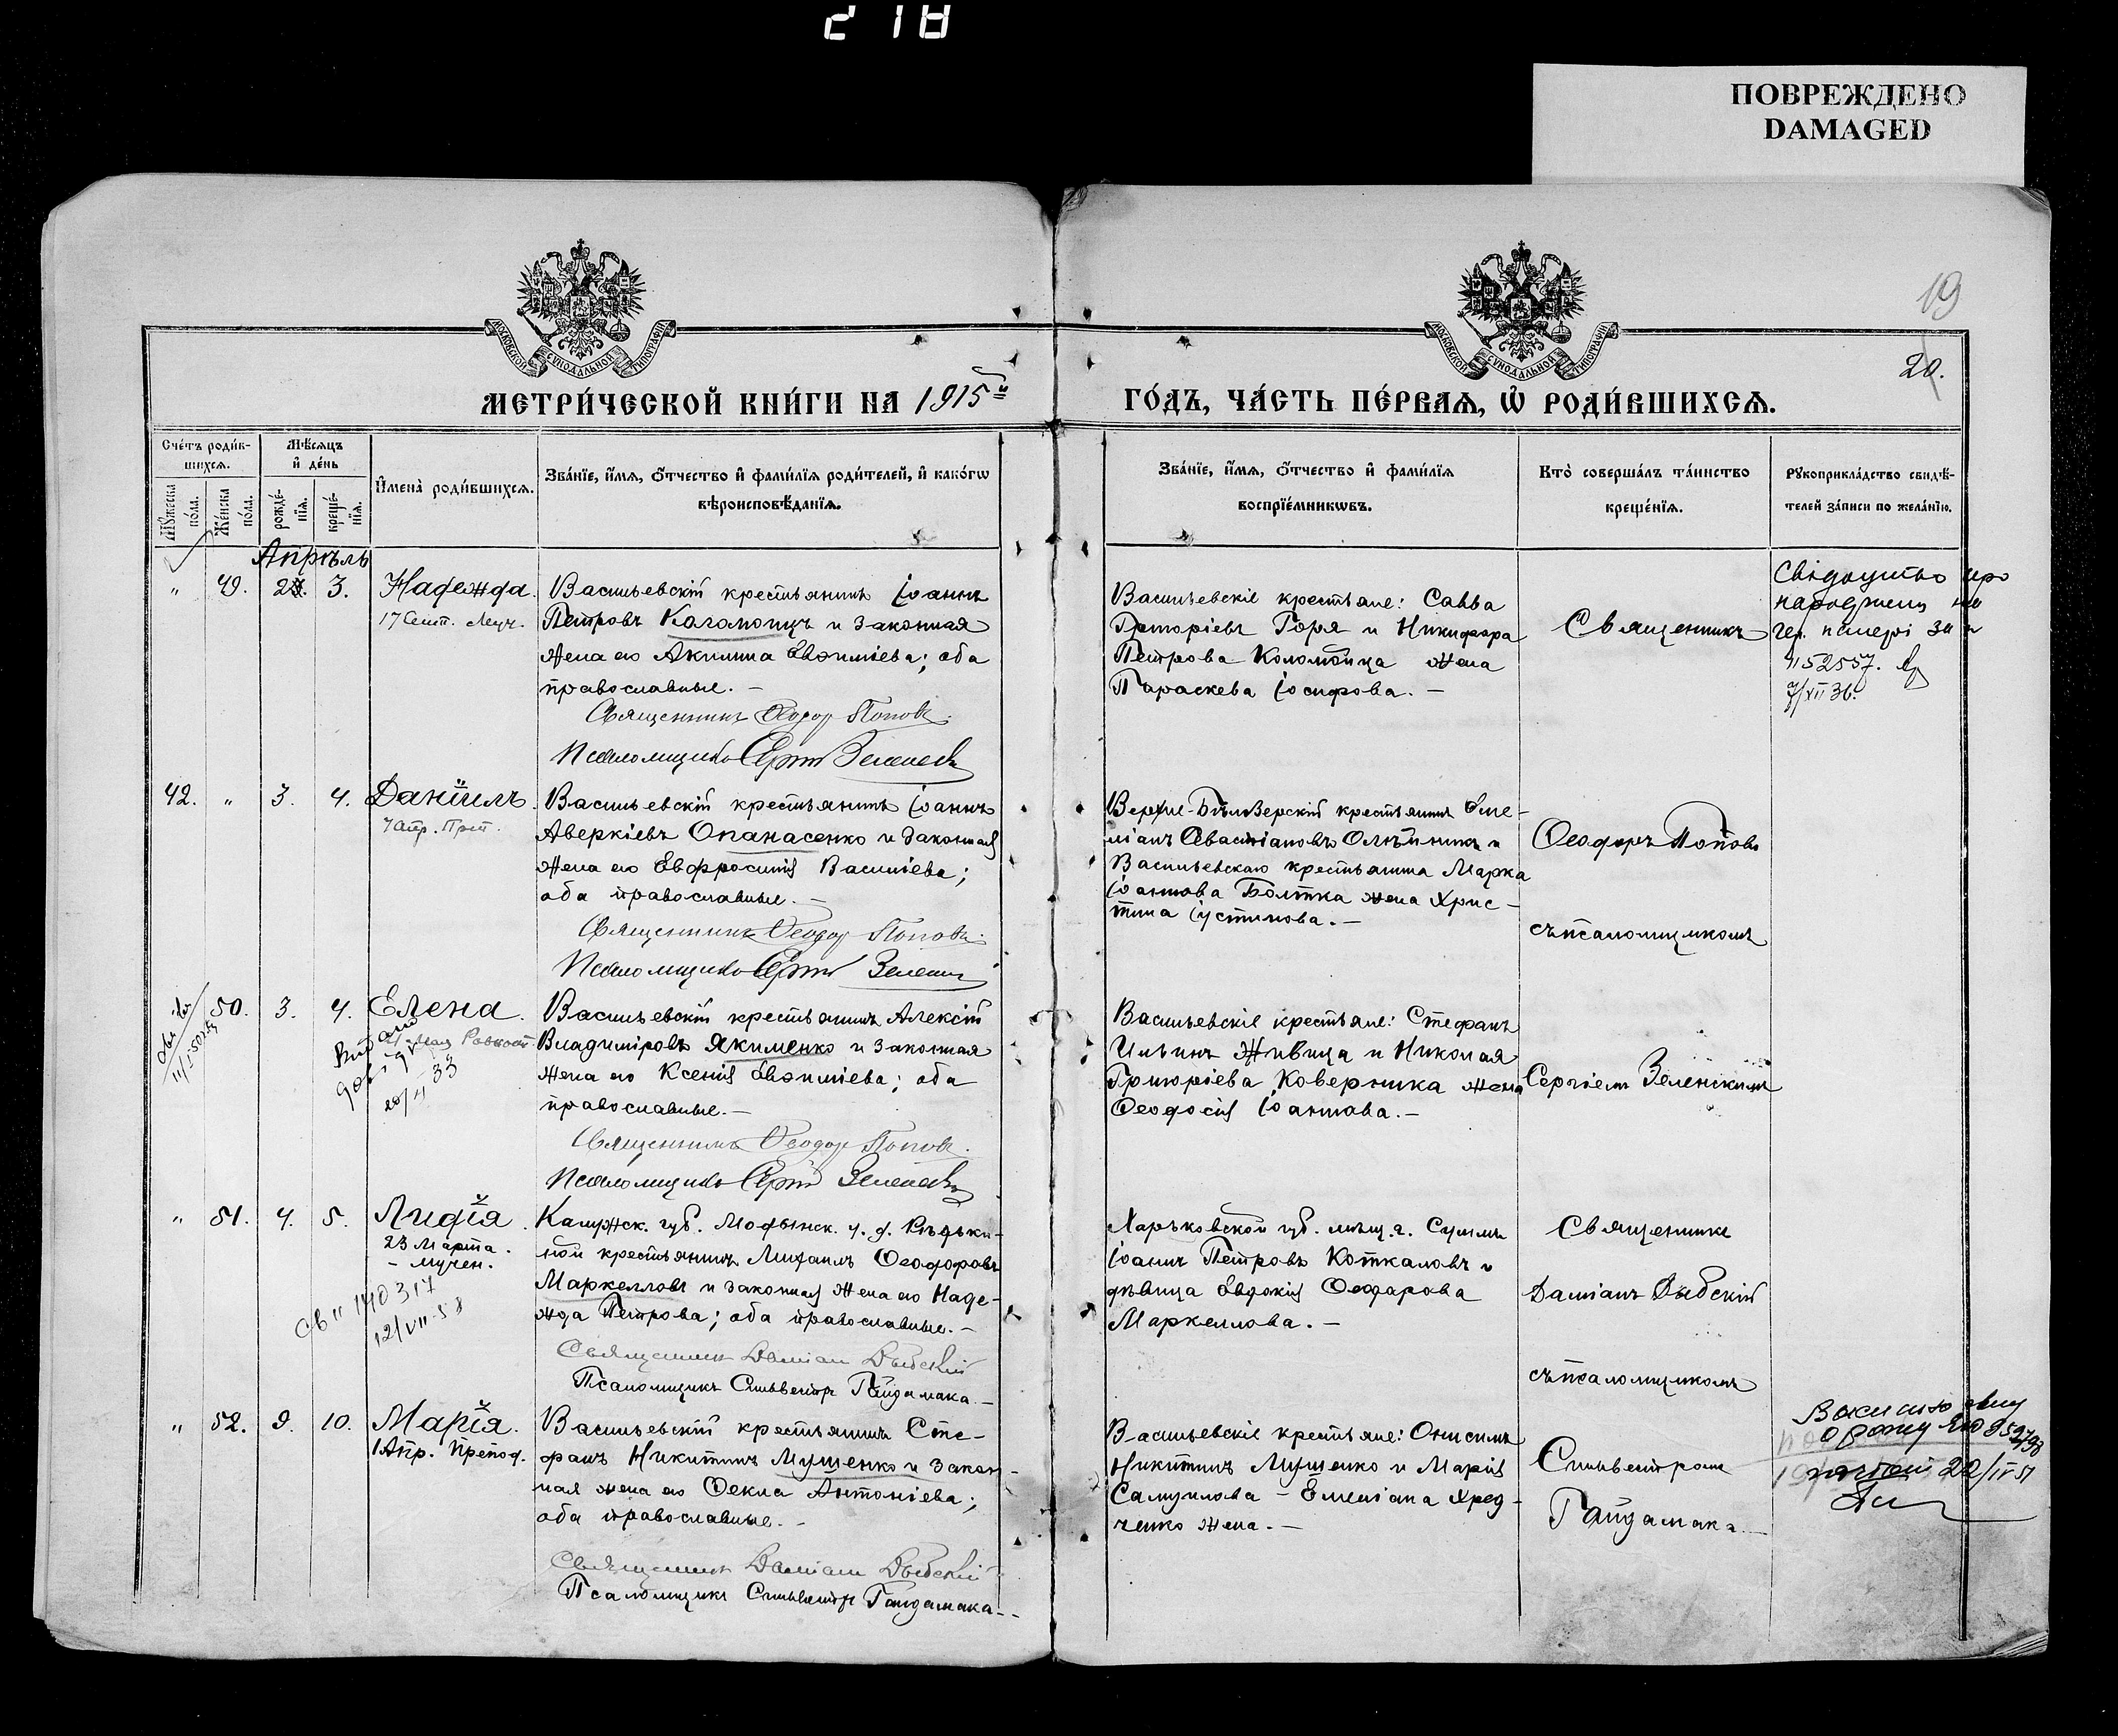 218
ПОВРЕЖДЕНО
DAMAGED
19
20.
МОСКОВСКОЙ СѴНОДАЛЬНОЙ ТИПОГРАФІИ
МОСКОВСКОЙ СѴНОДАЛЬНОЙ ТИПОГРАФІИ
МЕТРИ́ЧЕСКОЙ КНИ́ГИ НА 1915й
ГО́ДЪ, ЧА́СТЬ ПЕ́РВАѦ, Ѡ҆ РОДИ́ВШИХСѦ.
Сче́тъ роди́в-
шихсѧ.
Мѣ́сѧцъ
и҆ де́нь
И҆мена̀ роди́вшихсѧ.
Зва́нїе, и҆́мѧ, ѻ҆́тчество и҆ фами́лїѧ роди́телей, и҆ како́гѡ
вѣроисповѣ́данїѧ.
Мꙋжеска по́ла.
Же́нска по́ла.
рожде́-нїѧ.
креще́-нїѧ.
Зва́нїе, и҆́мѧ, ѻ҆́тчество и҆ фами́лїѧ
воспрїе́мникѡвъ.
Кто̀ соверша́лъ та́инство
креще́нїѧ.
Рꙋкоприкла́дство свидѣ́-
телей за́писи по жела́нїю.
Апрѣль
" 49. 3. Надежда.
17 Сент. Муч.
Васильевскій крестьянинъ Іоаннъ
Петровъ Коломоицъ и законная
жена его Акилина Евѳиміева; оба
православные. –
Священникъ Ѳеодоръ Поповъ.
Псаломщикъ Сергій Зеленскій
Васильевскіе крестьяне: Савва
Григоріевъ Горя и Никифора
Петрова Коломойца жена
Параскева Іосифова. –
Священникъ
Свідоцтво про
№52557.
7/XII 36.
42. " 3. 4. Даніилъ.
Васильевскій крестьянинъ Іоаннъ
Аверкіевъ Опанасенко и законная
жена его Евфросинія Василіева;
оба православные. –
Священникъ Ѳеодоръ Поповъ.
Псаломщикъ Сергій Зеленскій
Верхне-Бѣлозерскій крестьянинъ Еме-
ліанъ Олѣйникъ и
Васильевскаго крестьянина Марка
Іоаннова Болтка жена Хрис-
тина Іустинова. –
Ѳеодоръ Поповъ
съ псаломщикомъ
50. 3. 4. Елена.
Васильевскій крестьянинъ Алексій
Владиміровъ Якименко и законная
жена его Ксенія Евѳиміева; оба
православные. –
Священникъ Ѳеодоръ Поповъ.
Псаломщикъ Сергій Зеленскій
Васильевскіе крестьяне: Стефанъ
Ильинъ Живица и Николая
Григоріева Коверника жена
Ѳеодосія Іоаннова. –
Сергіемъ Зеленскимъ
" 51. 4. 5. Лидія.
23 Марта.
– мучен.
12/VII-58
Калужск. губ. Мосальск. у. д. Рѣдьки-
ной крестьянинъ Михаилъ Ѳеодоровъ
Маркелловъ и законная жена его Наде-
жда Петрова; оба православные. –
Священникъ Даміанъ Дыбскій
Псаломщикъ Сильвестръ Гайдамака. –
Харьковской губ. мѣщ. г. Сумъ
Іоаннъ Петровъ Коткаловъ и
дѣвица Евдокія Ѳеодорова
Маркеллова. –
Священникъ
Даміанъ Дыбскій
съ псаломщикомъ
" 52. 9. 10. Марія.
1 Апр. Препод.
Васильевскій крестьянинъ Сте-
фанъ Никитинъ Мушенко и закон-
ная жена его Ѳекла Антоніева;
оба православные. –
Священникъ Даміанъ Дыбскій
Псаломщикъ Сильвестръ Гайдамака –
Васильевскіе крестьяне: Онисимъ
Никитинъ Мушенко и Марія
Самуилова – Емеліана Хред-
ченко жена. –
Сильвестромъ
Гайдамака. –